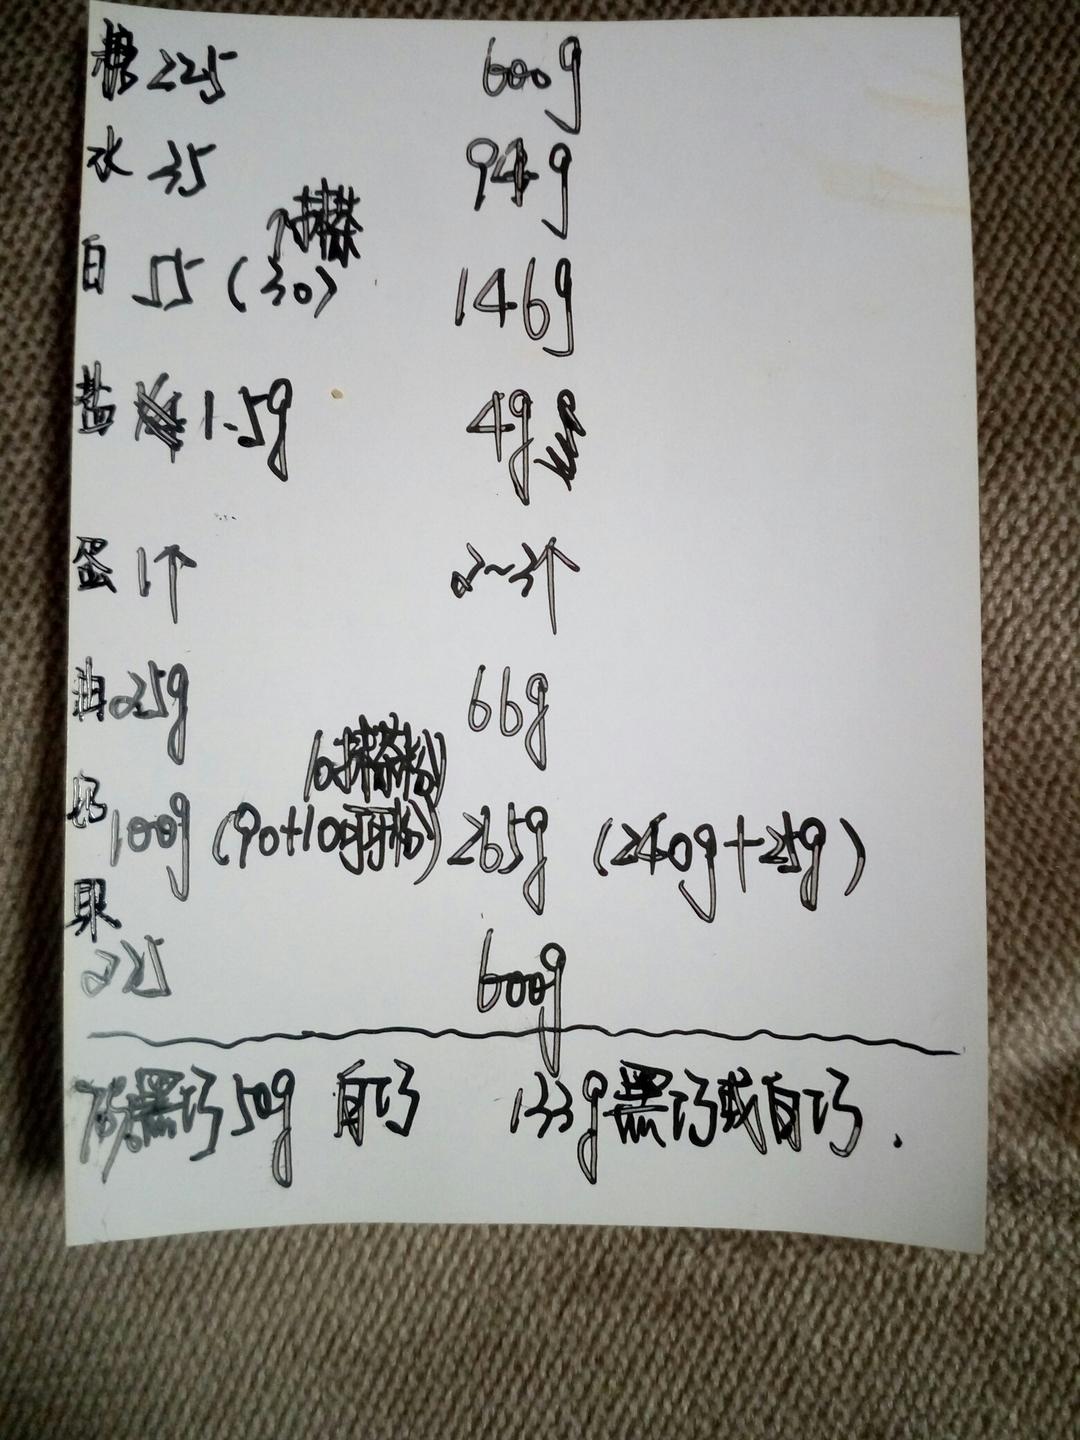 糖 225 600g
水 35 94g
抹茶
白 55 (30) 146g
盐 1.5g 4g
蛋 1个 2~3个
油 25g 66g
10抹茶粉)
奶 100g (90+10可可粉) 265g (240g+25g)
果
225 600g
黑巧 50g 白巧 133g黑巧或白巧.